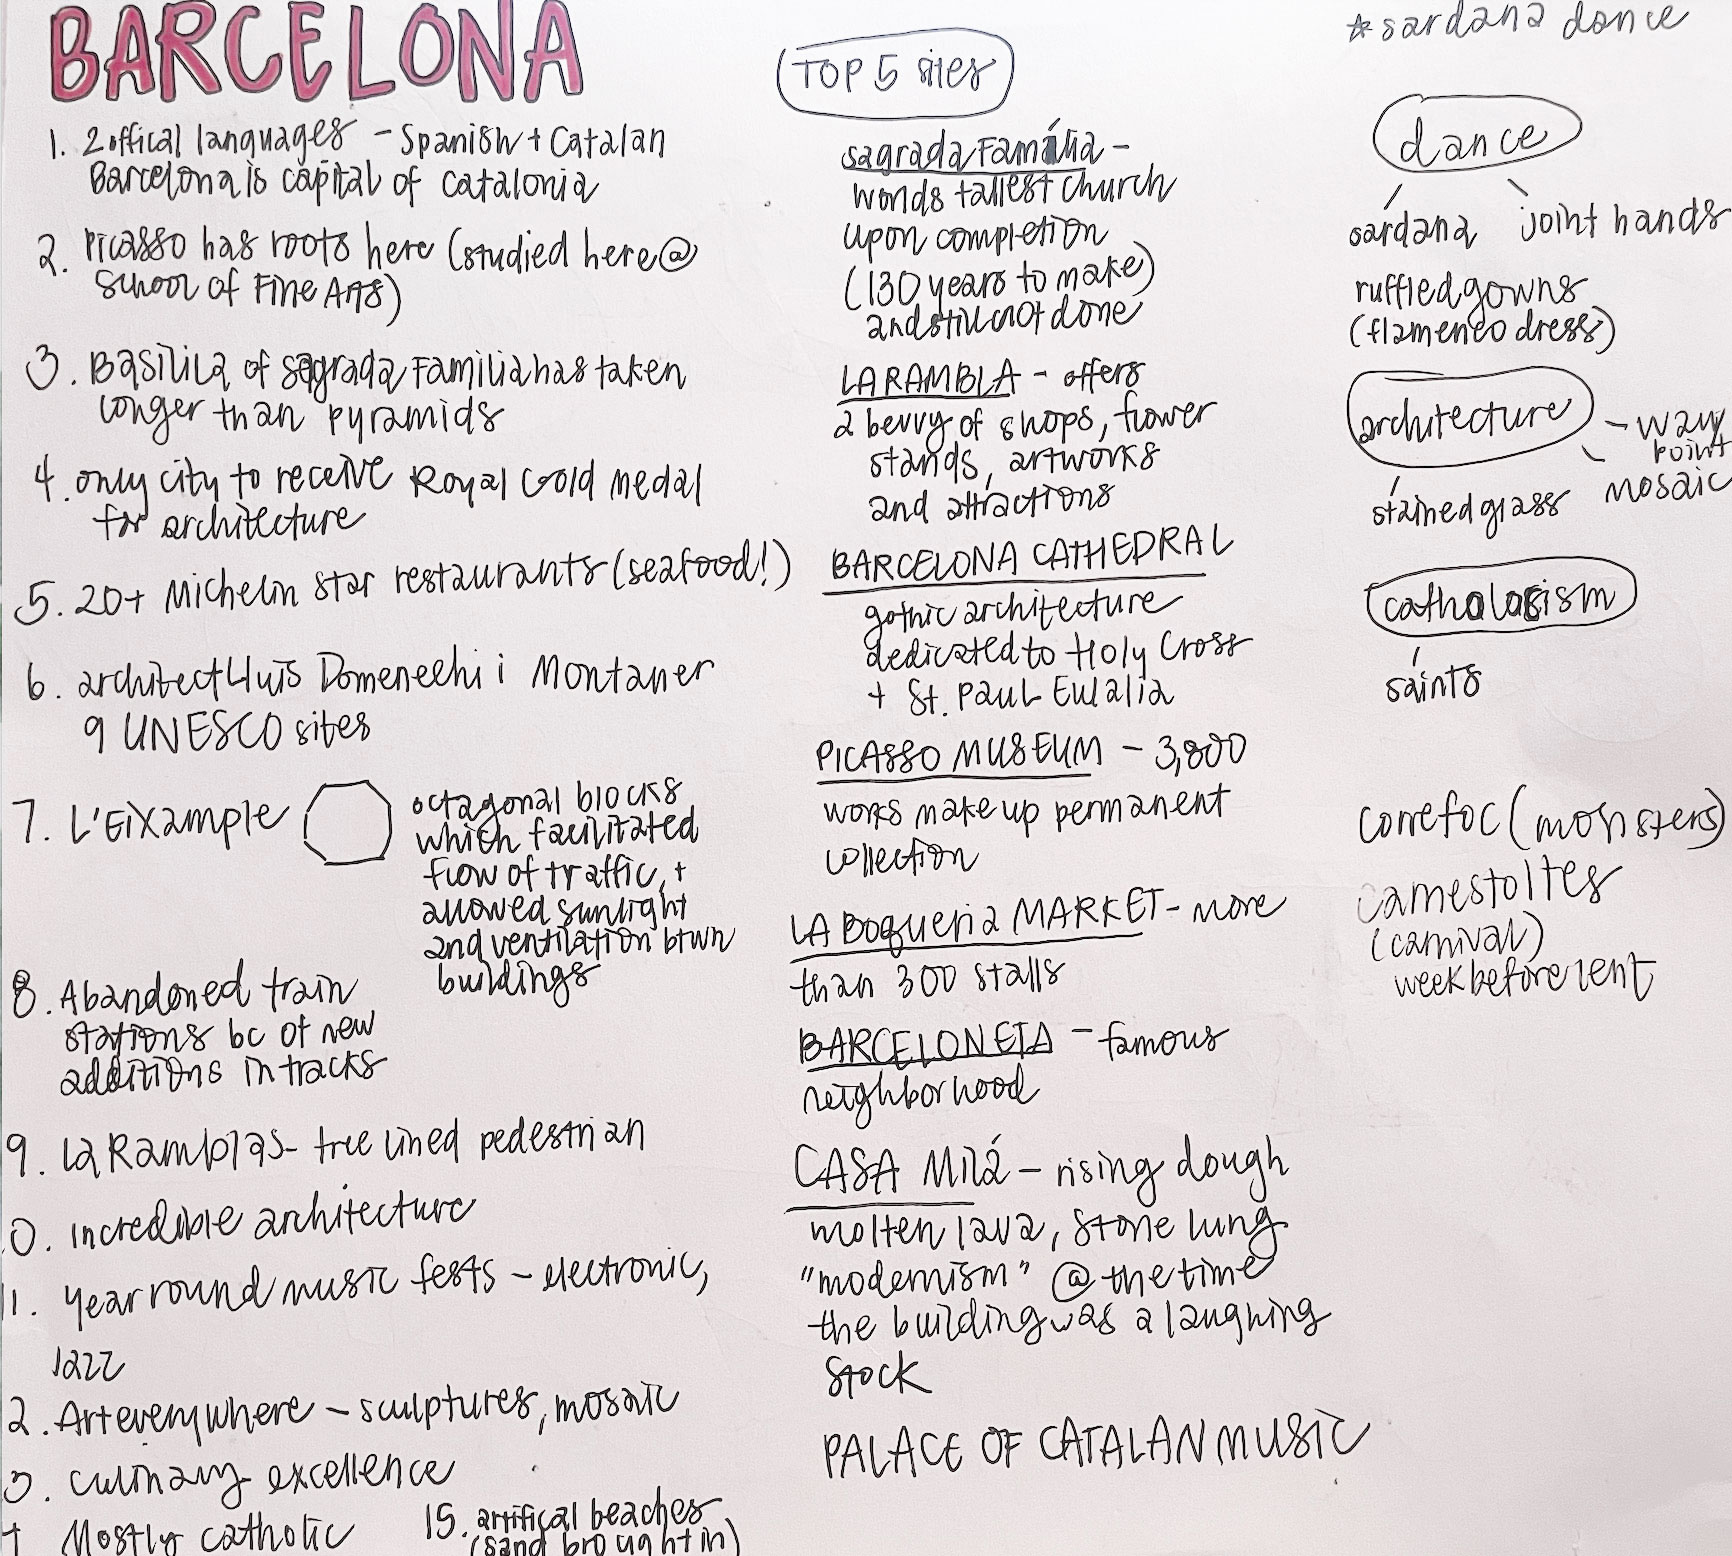 BARCELONA
1. 2 offical languages - Spanish + Catalan
Barcelona is capital of Catalonia
2. Picasso has roots here (studied here @
School of Fine Arts)
3. Basilila of Sagrada Familia has taken
longer than pyramids
4. only city to receive Royal Gold medal
for architecture
5. 20+ Michelin Star restaurants (seafood!)
6. architect Lluis Domenechi i Montaner
9 UNESCO sites
7. L'Eixample
octagonal blocks
which facilitated
flow of traffic, +
allowed sunlight
and ventilation btwn
buildings
8. Abandoned train
stations bc of new
additions in tracks
9. La Ramblas - tree lined pedestrian
0. incredible architecture
1. year round music fests - electronic,
jazz
2. Art everywhere - sculptures, mosaic
3. culinary excellence
Mostly catholic
15. artifical beaches
(sand brought in)
TOP 5 sites
sagrada Família -
worlds tallest church
upon completion
(130 years to make)
and still not done
LA RAMBLA - offers
a bevvy of shops, flower
stands, artworks
and attractions
BARCELONA CATHEDRAL
gothic architecture
dedicated to Holy Cross
+ St. Paul Eulalia
PICASSO MUSEUM - 3,800
works make up permanent
collection
LA Boqueria MARKET - more
than 300 stalls
BARCELONETA - famous
neighborhood
CASA Milá - rising dough
molten lava, stone lung
"modernism" @ the time
the building was a laughing
stock
PALACE OF CATALAN MUSIC
*sardana dance
dance
sardana joint hands
ruffled gowns
(flamenco dress)
architecture - way
point
stained glass mosaic
catholosism
saints
correfoc (monsters)
carnestoltes
(carnival)
week before lent